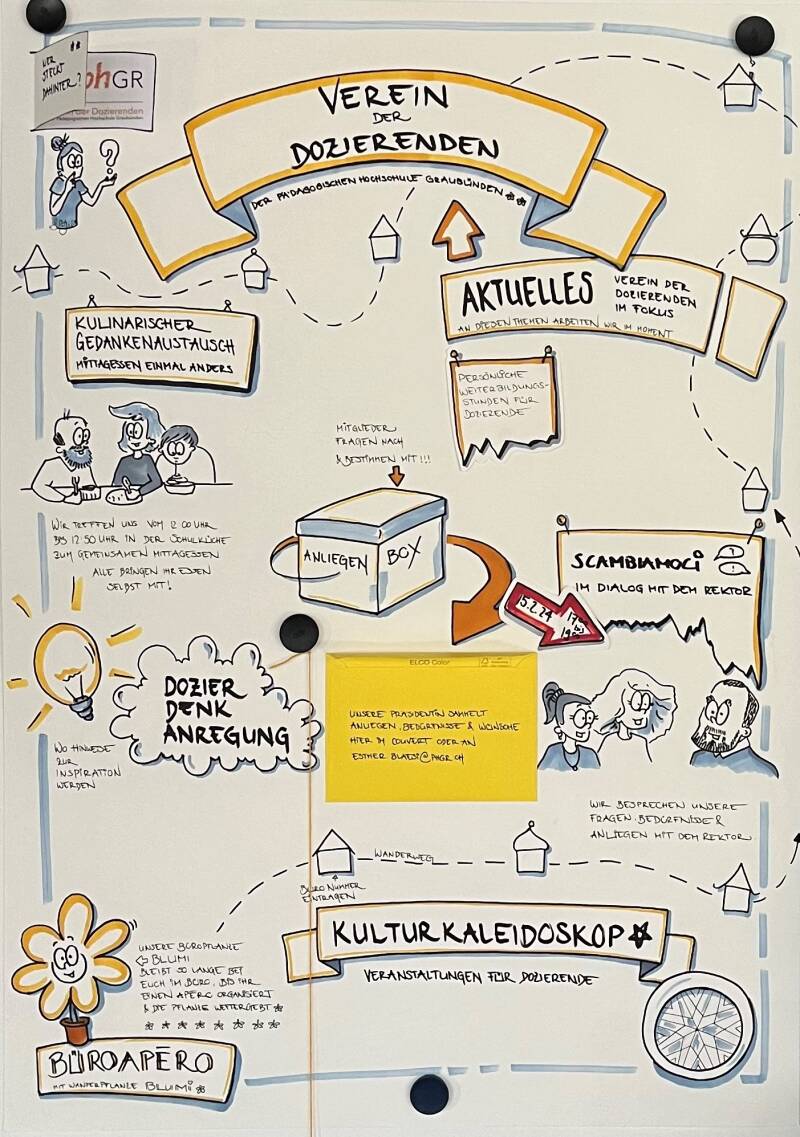 WER
STECKT
DAHINTER?
phGR
der Dozierenden
Pädagogischen Hochschule Graubünden
VEREIN
DER
DOZIERENDEN
DER PÄDAGOGISCHEN HOCHSCHULE GRAUBÜNDEN
AKTUELLES
VEREIN DER
DOZIERENDEN
IM FOKUS
AN DIESEN THEMEN ARBEITEN WIR IM MOMENT
KULINARISCHER
GEDANKENAUSTAUSCH
MITTAGESSEN EINMAL ANDERS
PERSÖNLICHE
WEITERBILDUNGS-
STUNDEN FÜR
DOZIERENDE
MITGLIEDER
FRAGEN NACH
& BESTIMMEN MIT!!!
WIR TREFFEN UNS VOM 12:00 UHR
BIS 12:50 UHR IN DER SCHULKÜCHE
ZUM GEMEINSAMEN MITTAGESSEN
ALLE BRINGEN IHR ESSEN
SELBST MIT!
ANLIEGEN BOX
SCAMBIAMOCI
IM DIALOG MIT DEM REKTOR
15.2.24
ELCO Color
DOZIER
DENK
ANREGUNG
UNSERE PRÄSIDENTIN SAMMELT
ANLIEGEN, BEDÜRFNISSE & WÜNSCHE
HIER IM COUVERT ODER AN
ESTHER.BLAESI@PHGR.CH
WO HINWEISE
ZUR
INSPIRATION
WERDEN
WIR BESPRECHEN UNSERE
FRAGEN, BEDÜRFNISSE &
ANLIEGEN MIT DEM REKTOR
WANDERWEG
BÜRO NUMMER
EINTRAGEN
KULTURKALEIDOSKOP
VERANSTALTUNGEN FÜR DOZIERENDE
UNSERE BÜROPFLANZE
BLUMI
BLEIBT SO LANGE BEI
EUCH IM BÜRO, BIS IHR
EINEN APÉRO ORGANISIERT
& DIE PFLANZE WEITERGEBT
BÜROAPÉRO
MIT WANDERPFLANZE BLUMI